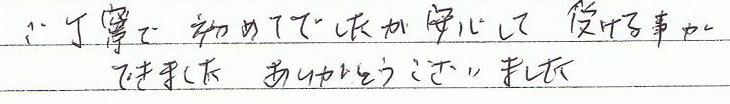 ご丁寧で 初めてでしたが 安心して 受ける事が
できました ありがとうございました